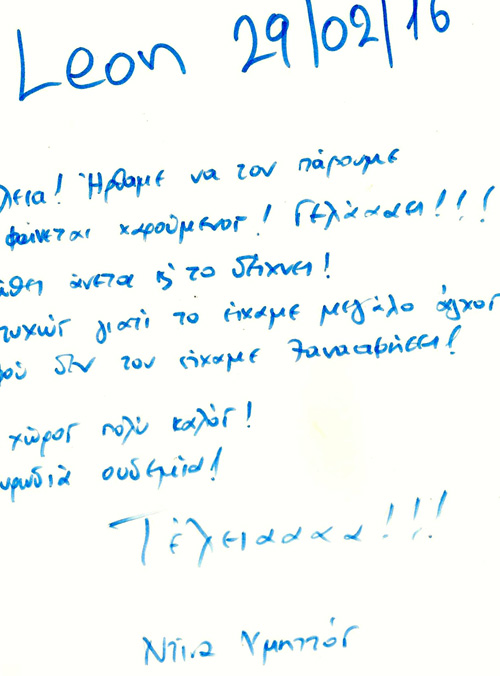 Leon 29/02/16
λεια! Ήρθαμε να τον πάρουμε
φαίνεται χαρούμενος! Γελάααει!!!
άθει άνετα κ' το δείχνει!
τυχώς γιατί το είχαμε μεγάλο άγχος
ού δεν τον είχαμε ξανααφήσει!
χώρος πολύ καλός!
υρωδιά ουδεμία!
Τέλειαααα!!!
Ντίνα Υμηττός